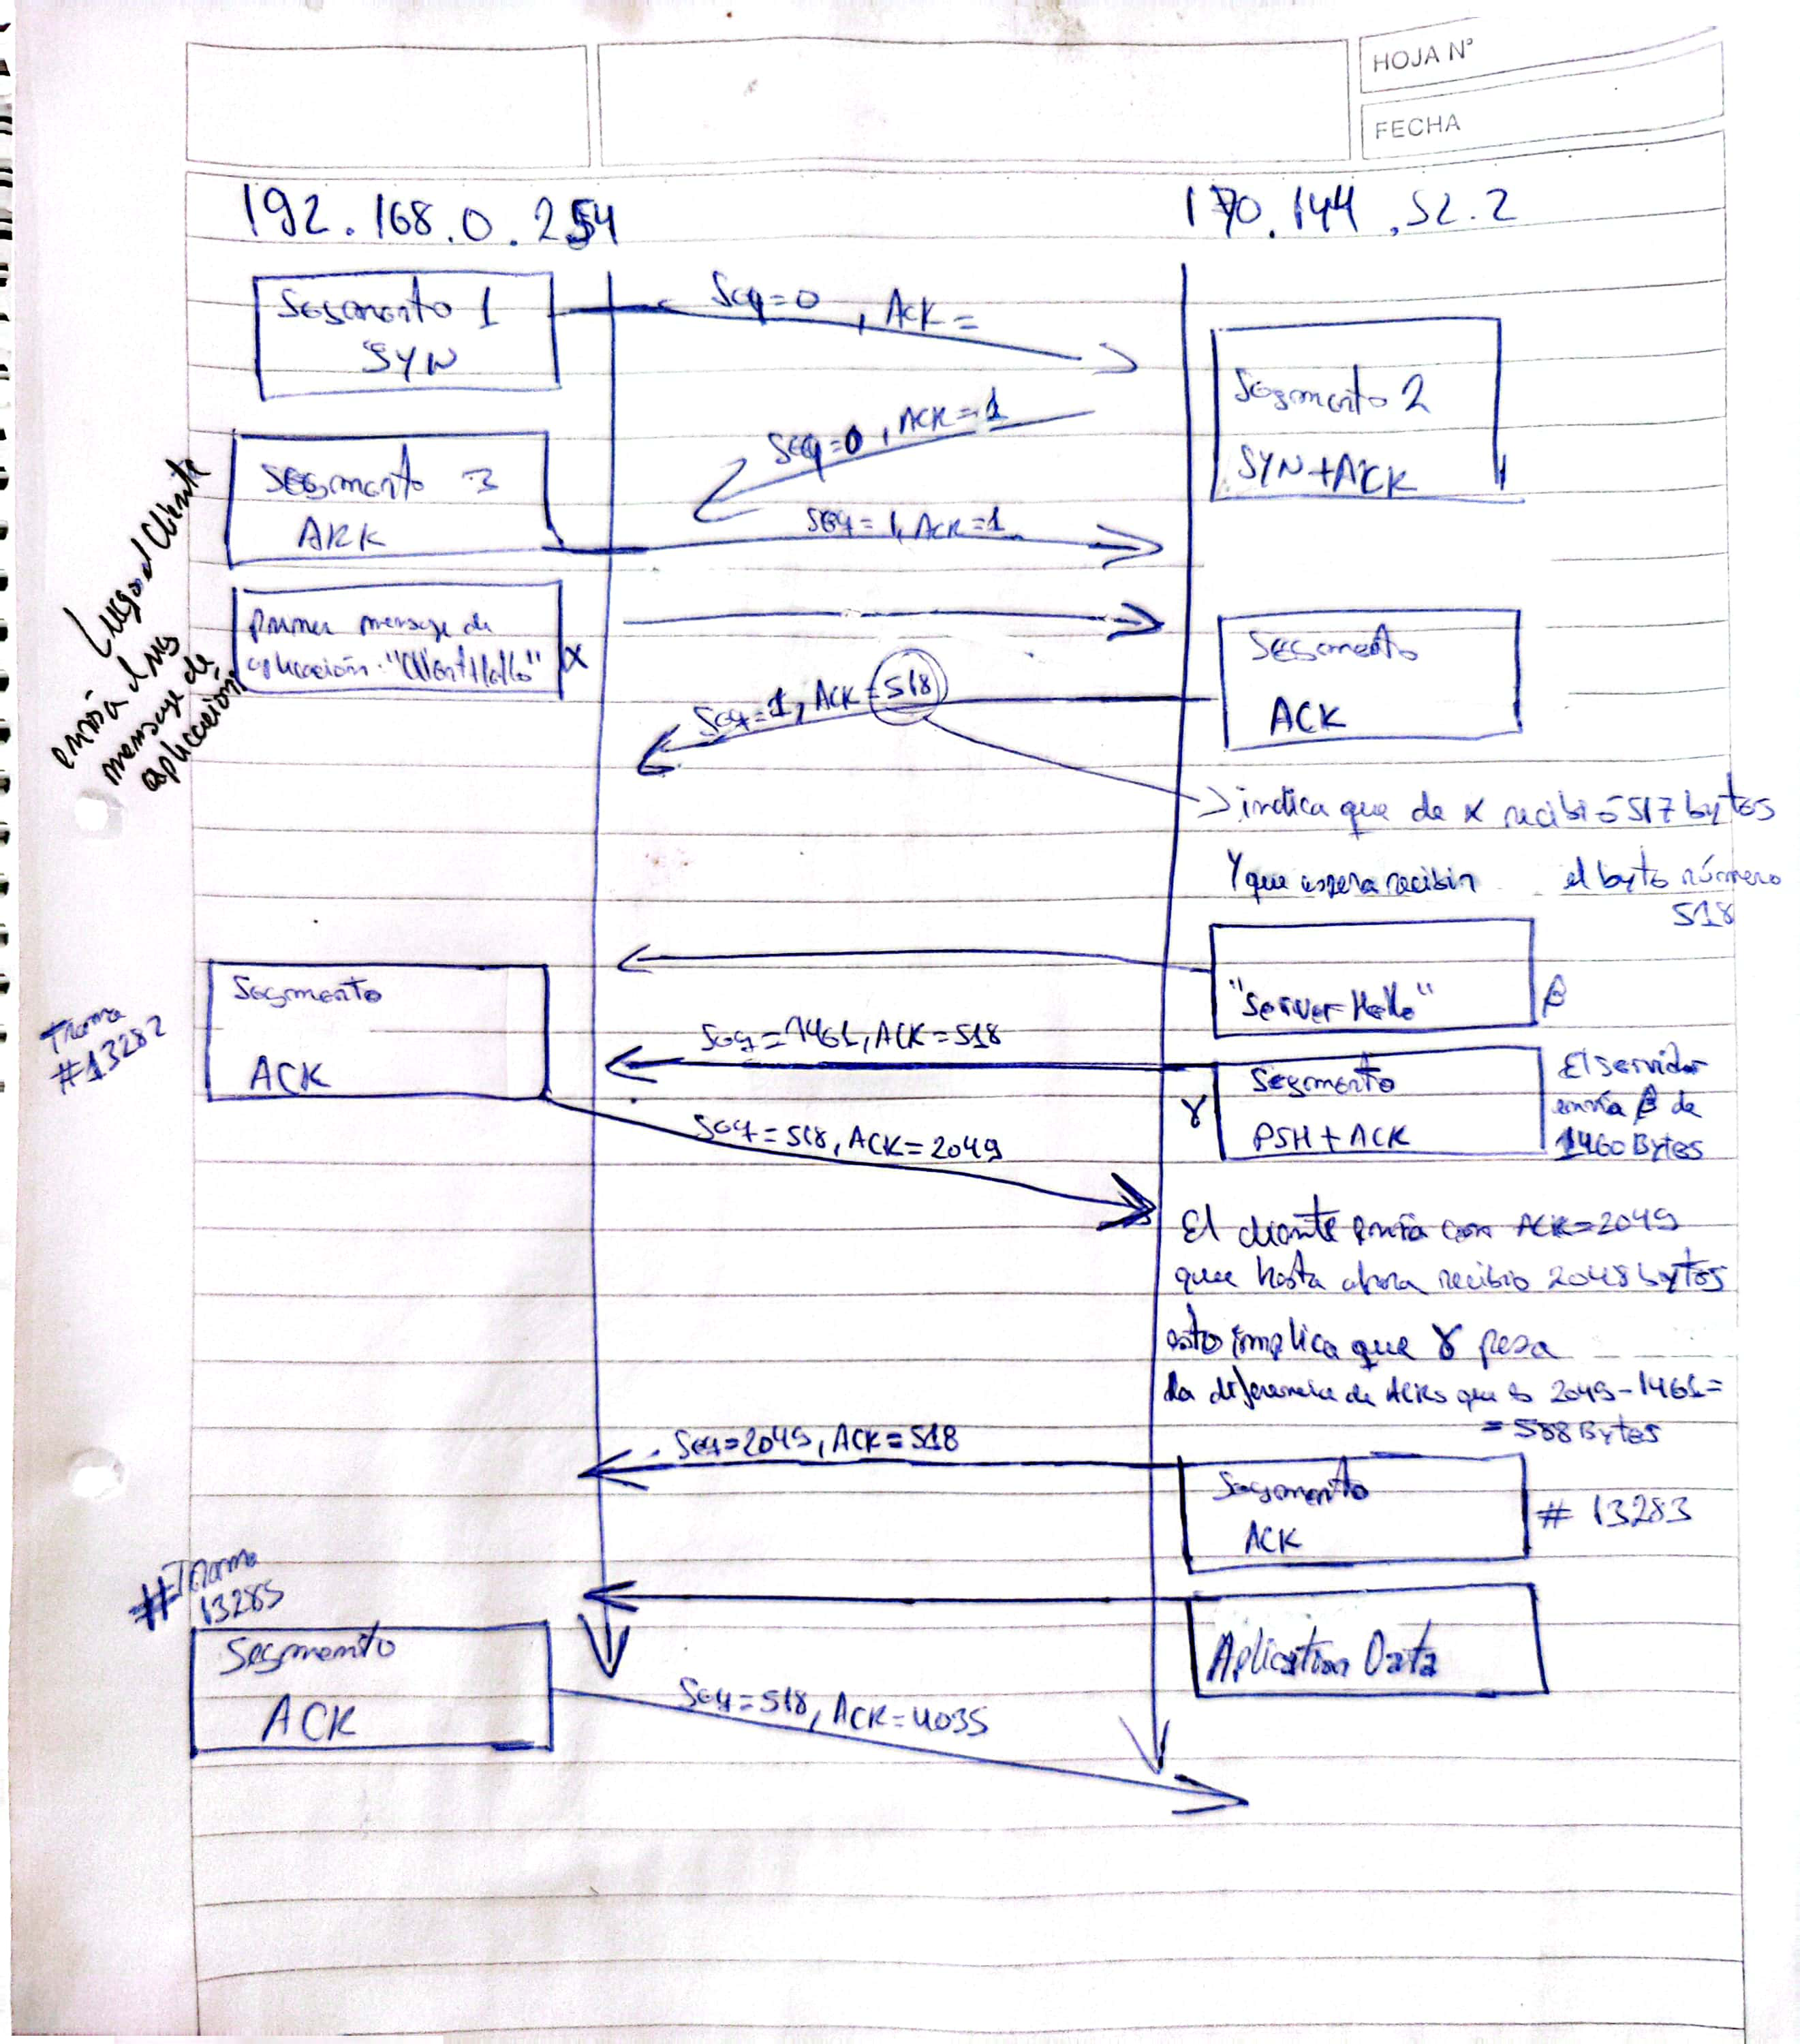 HOJA Nº
FECHA
192.168.0.254
170.144.52.2
Segmento 1
SYN
Seq=0, Ack=
Segmento 2
SYN+ACK
Seq=0, ACK=1
Segmento 3
ACK
Seq=1, ACK=1
Luego el Cliente
envía el
mensaje de
aplicación
Primer mensaje de
aplicación: "ClientHello"
α
Segmento
ACK
Seq=1, ACK=518
indica que de α recibió 517 bytes
Y que espera recibir el byte número
518
"Server Hello"
β
Trama
#13282
Segmento
ACK
Seq=1461, ACK=518
γ
Segmento
PSH+ACK
El servidor
envía β de
1460 Bytes
Seq=518, ACK=2049
El cliente envía con ACK=2049
que hasta ahora recibio 2048 bytes
esto implica que γ pesa
la diferencia de ACKs que es 2049-1461=
=588 Bytes
Seq=2049, ACK=518
Segmento
ACK
# 13283
#Trama
13285
Segmento
ACK
Aplication Data
Seq=518, ACK=4035